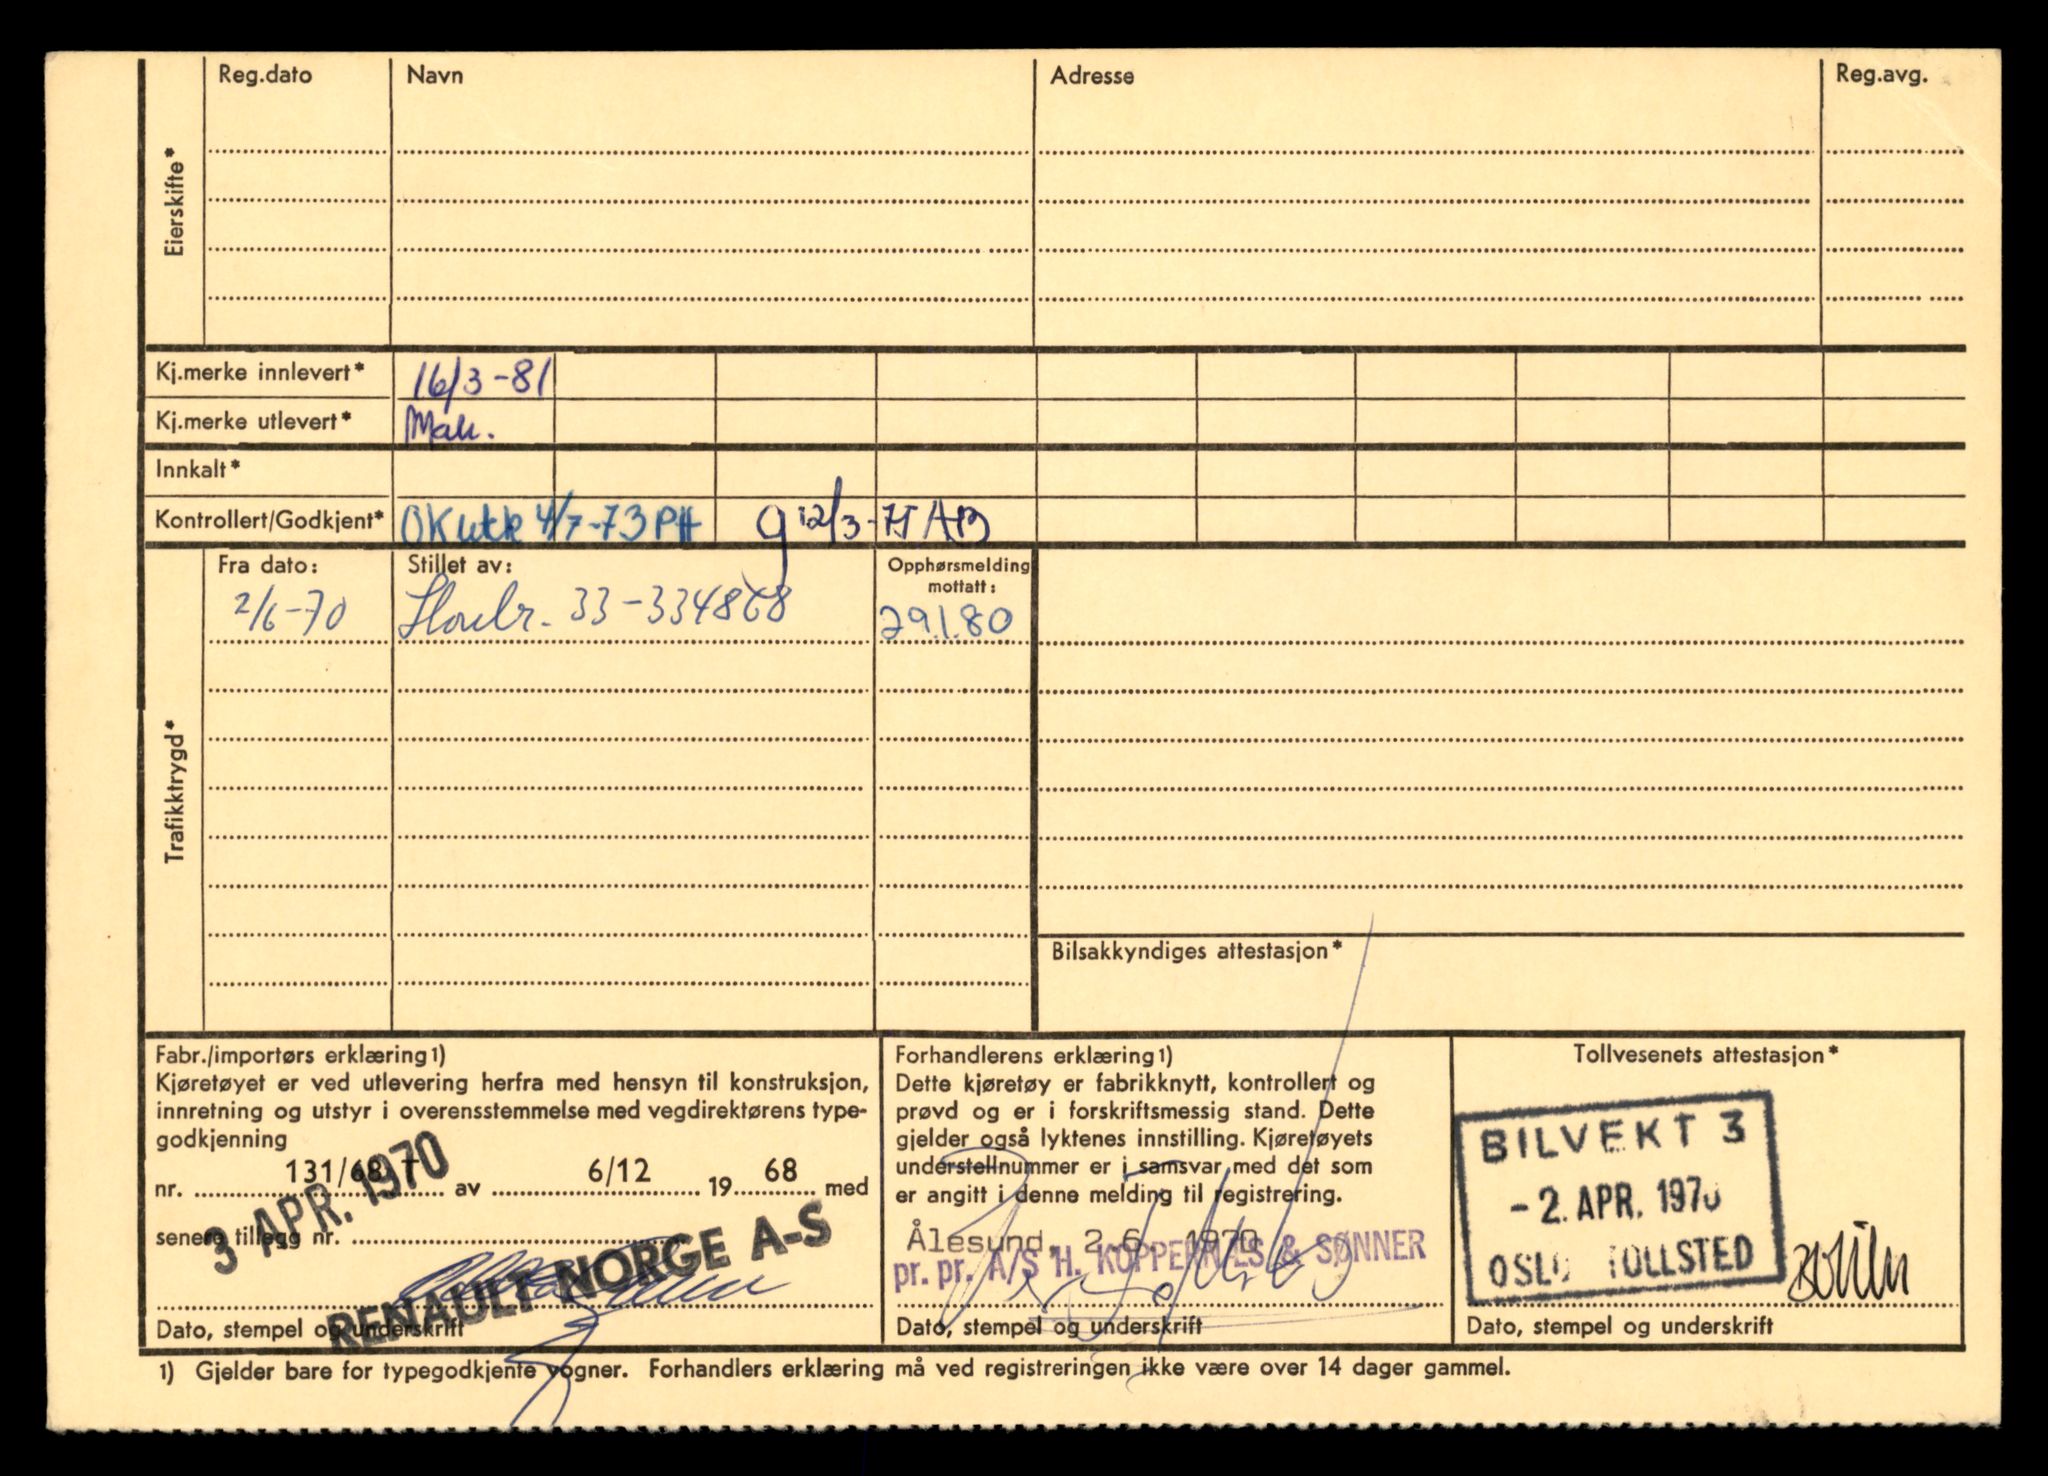 Reg.dato Navn Adresse Reg.avg.
Eierskifte*
Kj.merke innlevert* 16/3-81
Kj.merke utlevert* Mak.
Innkalt*
Kontrollert/Godkjent* OK utk 4/7-73 PH
Fra dato: Stillet av: Opphørsmelding mottatt:
2/6-70 33-334868 29.1.80
Trafikktrygd*
Bilsakkyndiges attestasjon*
Fabr./importørs erklæring 1)
Kjøretøyet er ved utlevering herfra med hensyn til konstruksjon,
innretning og utstyr i overensstemmelse med vegdirektørens type-
godkjenning
nr. 131/68 T av 6/12 19 68 med
senere tillegg nr.
3 APR. 1970
RENAULT NORGE A-S
Dato, stempel og underskrift
Forhandlerens erklæring 1)
Dette kjøretøy er fabrikknytt, kontrollert og
prøvd og er i forskriftsmessig stand. Dette
gjelder også lyktenes innstilling. Kjøretøyets
understellnummer er i samsvar med det som
er angitt i denne melding til registrering.
Ålesund, 2.6. 1970
pr. pr. A/S H. KOPPERNÆS & SØNNER
Dato, stempel og underskrift
Tollvesenets attestasjon*
BILVEKT 3
- 2. APR. 1970
OSLO TOLLSTED
Dato, stempel og underskrift
1) Gjelder bare for typegodkjente vogner. Forhandlers erklæring må ved registreringen ikke være over 14 dager gammel.